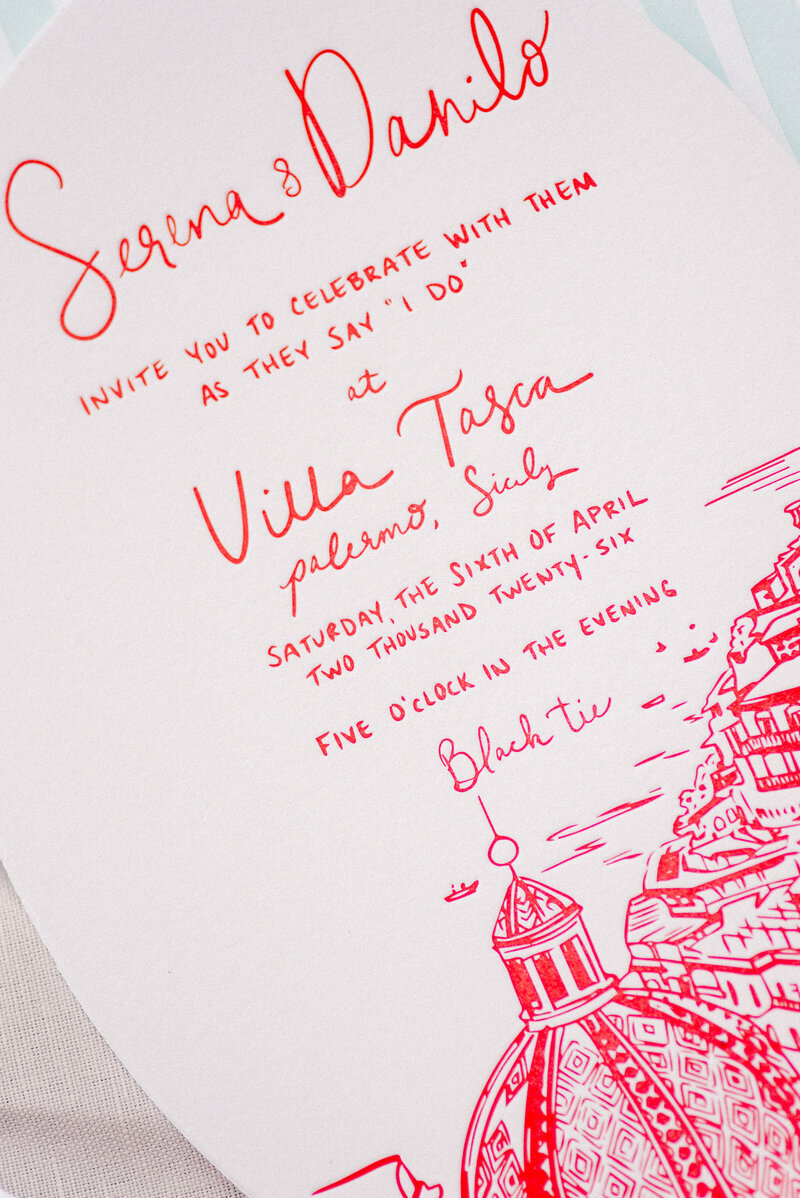 Serena & Danilo
INVITE YOU TO CELEBRATE WITH THEM
AS THEY SAY "I DO"
at
Villa Tasca
palermo, Sicily
SATURDAY, THE SIXTH OF APRIL
TWO THOUSAND TWENTY-SIX
FIVE O'CLOCK IN THE EVENING
Black tie